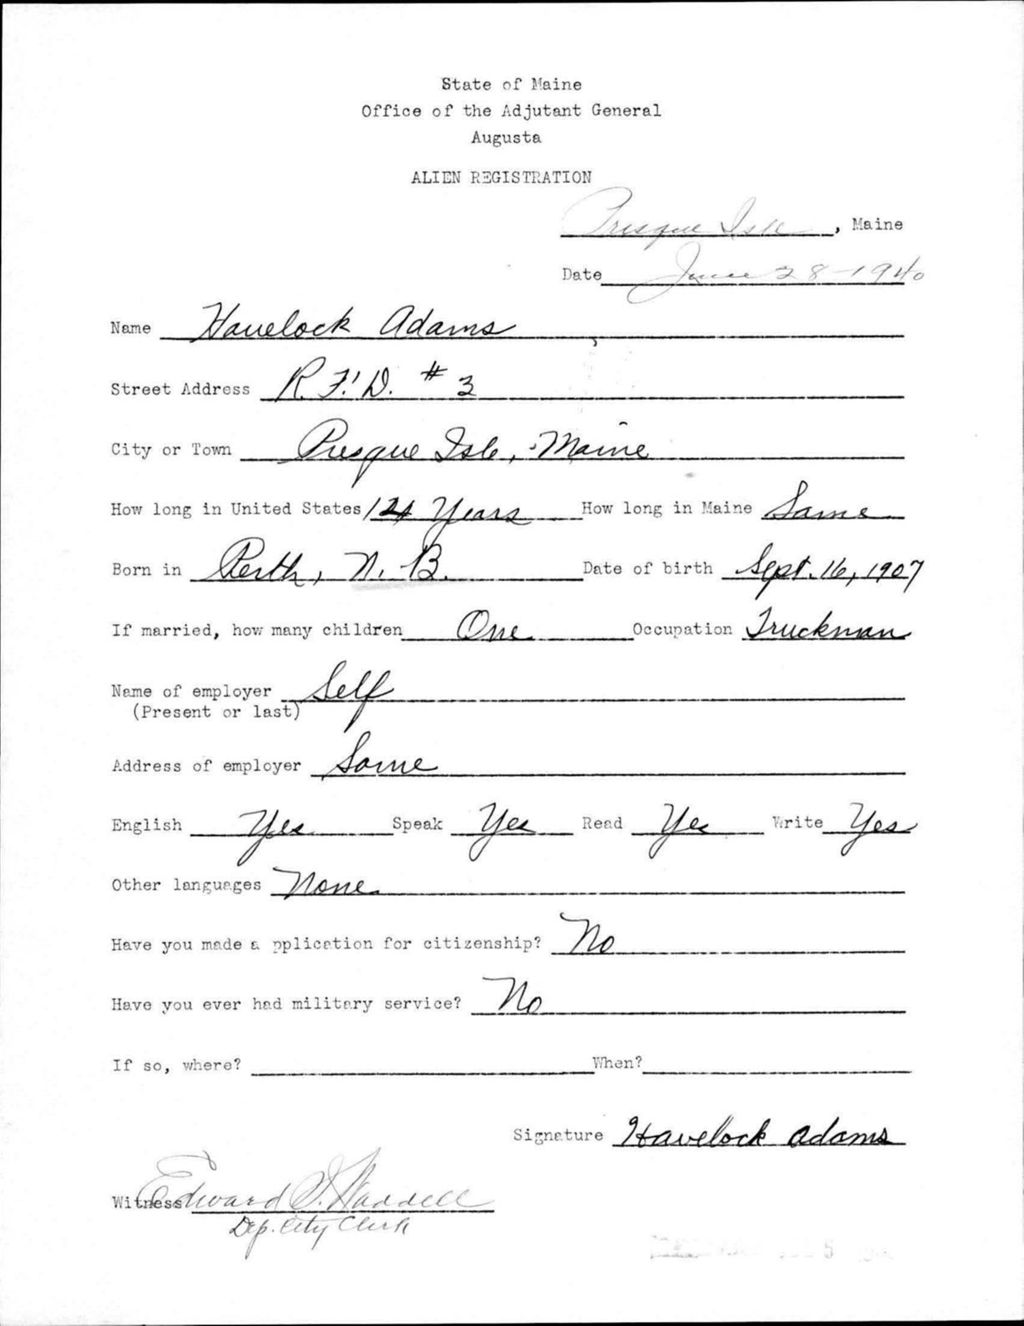 State of Maine
Office of the Adjutant General
Augusta
ALIEN REGISTRATION
Presque Isle, Maine
Date June 28-1940
Name Havelock Adams
Street Address R.F.D. # 3
City or Town Presque Isle, Maine
How long in United States Years How long in Maine Same
Born in Perth, N.B. Date of birth Sept. 16, 1907
If married, how many children One Occupation Truckman
Name of employer Self
(Present or last)
Address of employer Same
English Yes Speak Yes Read Yes Write Yes
Other languages None
Have you made a pplication for citizenship? No
Have you ever had military service? No
If so, where? When?
Signature Havelock Adams
Witness Edward Waddell
Dep. City Clerk